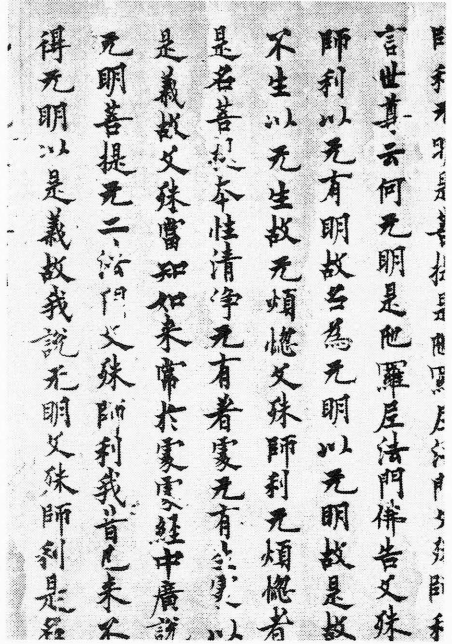 師利无明是菩提是陁羅尼法門文殊師利
言世尊云何无明是陁羅尼法門佛告文殊
師利以无有明故名為无明以无明故是故
不生以无生故无煩惚文殊師利无煩惚者
是名菩提本性清净无有者處无有生處以
是義故文殊當知如来常於處處経中廣說
无明菩提无二〻法門文殊師利我昔已来不
得无明以是義故我說无明文殊師利是名